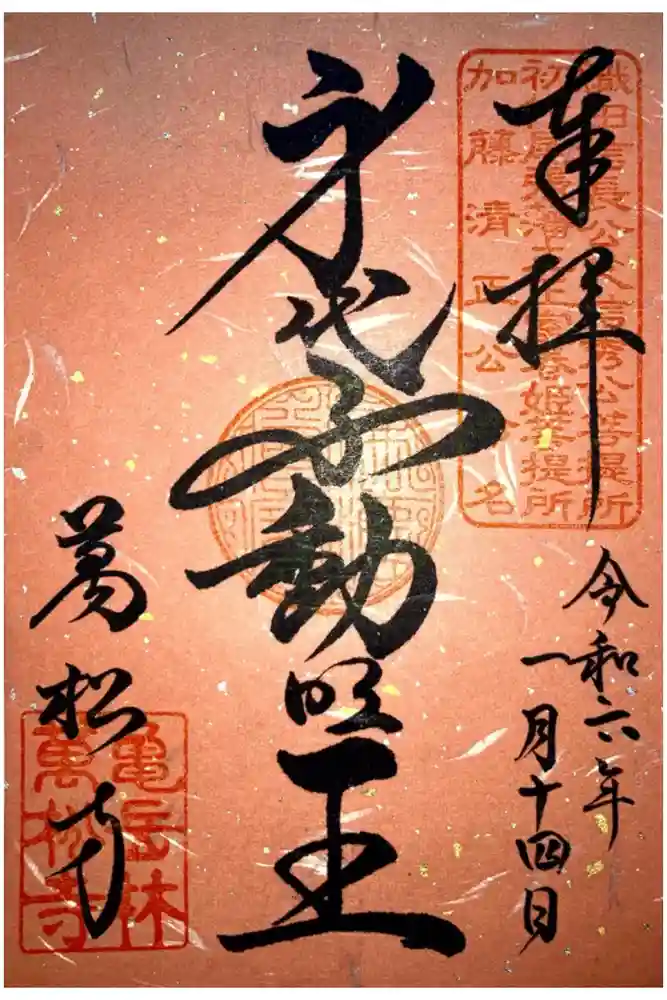 奉拝
織田信長公 信秀公菩提所
初代尾張藩主正室春姫菩提所
加藤清正公 名
令和六年
一月十四日
身代不動明王
萬松寺
亀岳林
萬松寺